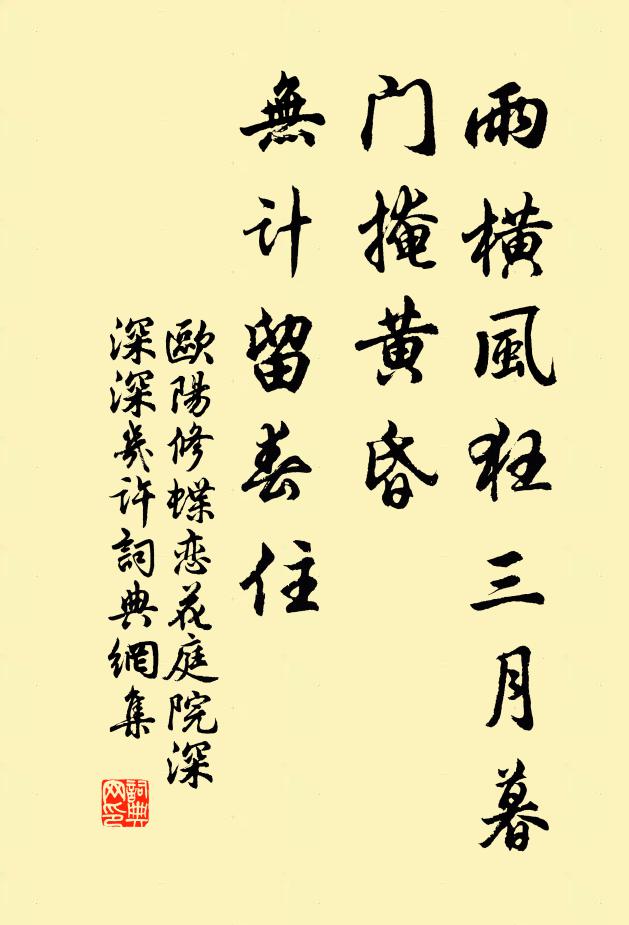 雨橫風狂三月暮
门掩黄昏
無计留春住
歐陽修蝶恋花庭院深
深深幾许詞典網集
詞典网印